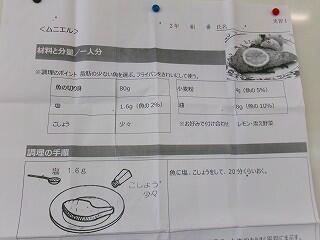 2年 組 番 氏名
<ムニエル>
材料と分量/一人分
※調理のポイント 脂肪の少ない魚を選ぶ。フライパンをきれいにして使う。
魚の切り身 80g 小麦粉 4g (魚の5%)
塩 1.6g (魚の2%) 油 8g (魚の10%)
こしょう 少々 ※お好みで付け合わせ レモン・温え野菜
調理の手順
塩 1.6g
こしょう
少々
魚に塩、こしょうをして、20分くらいおく。